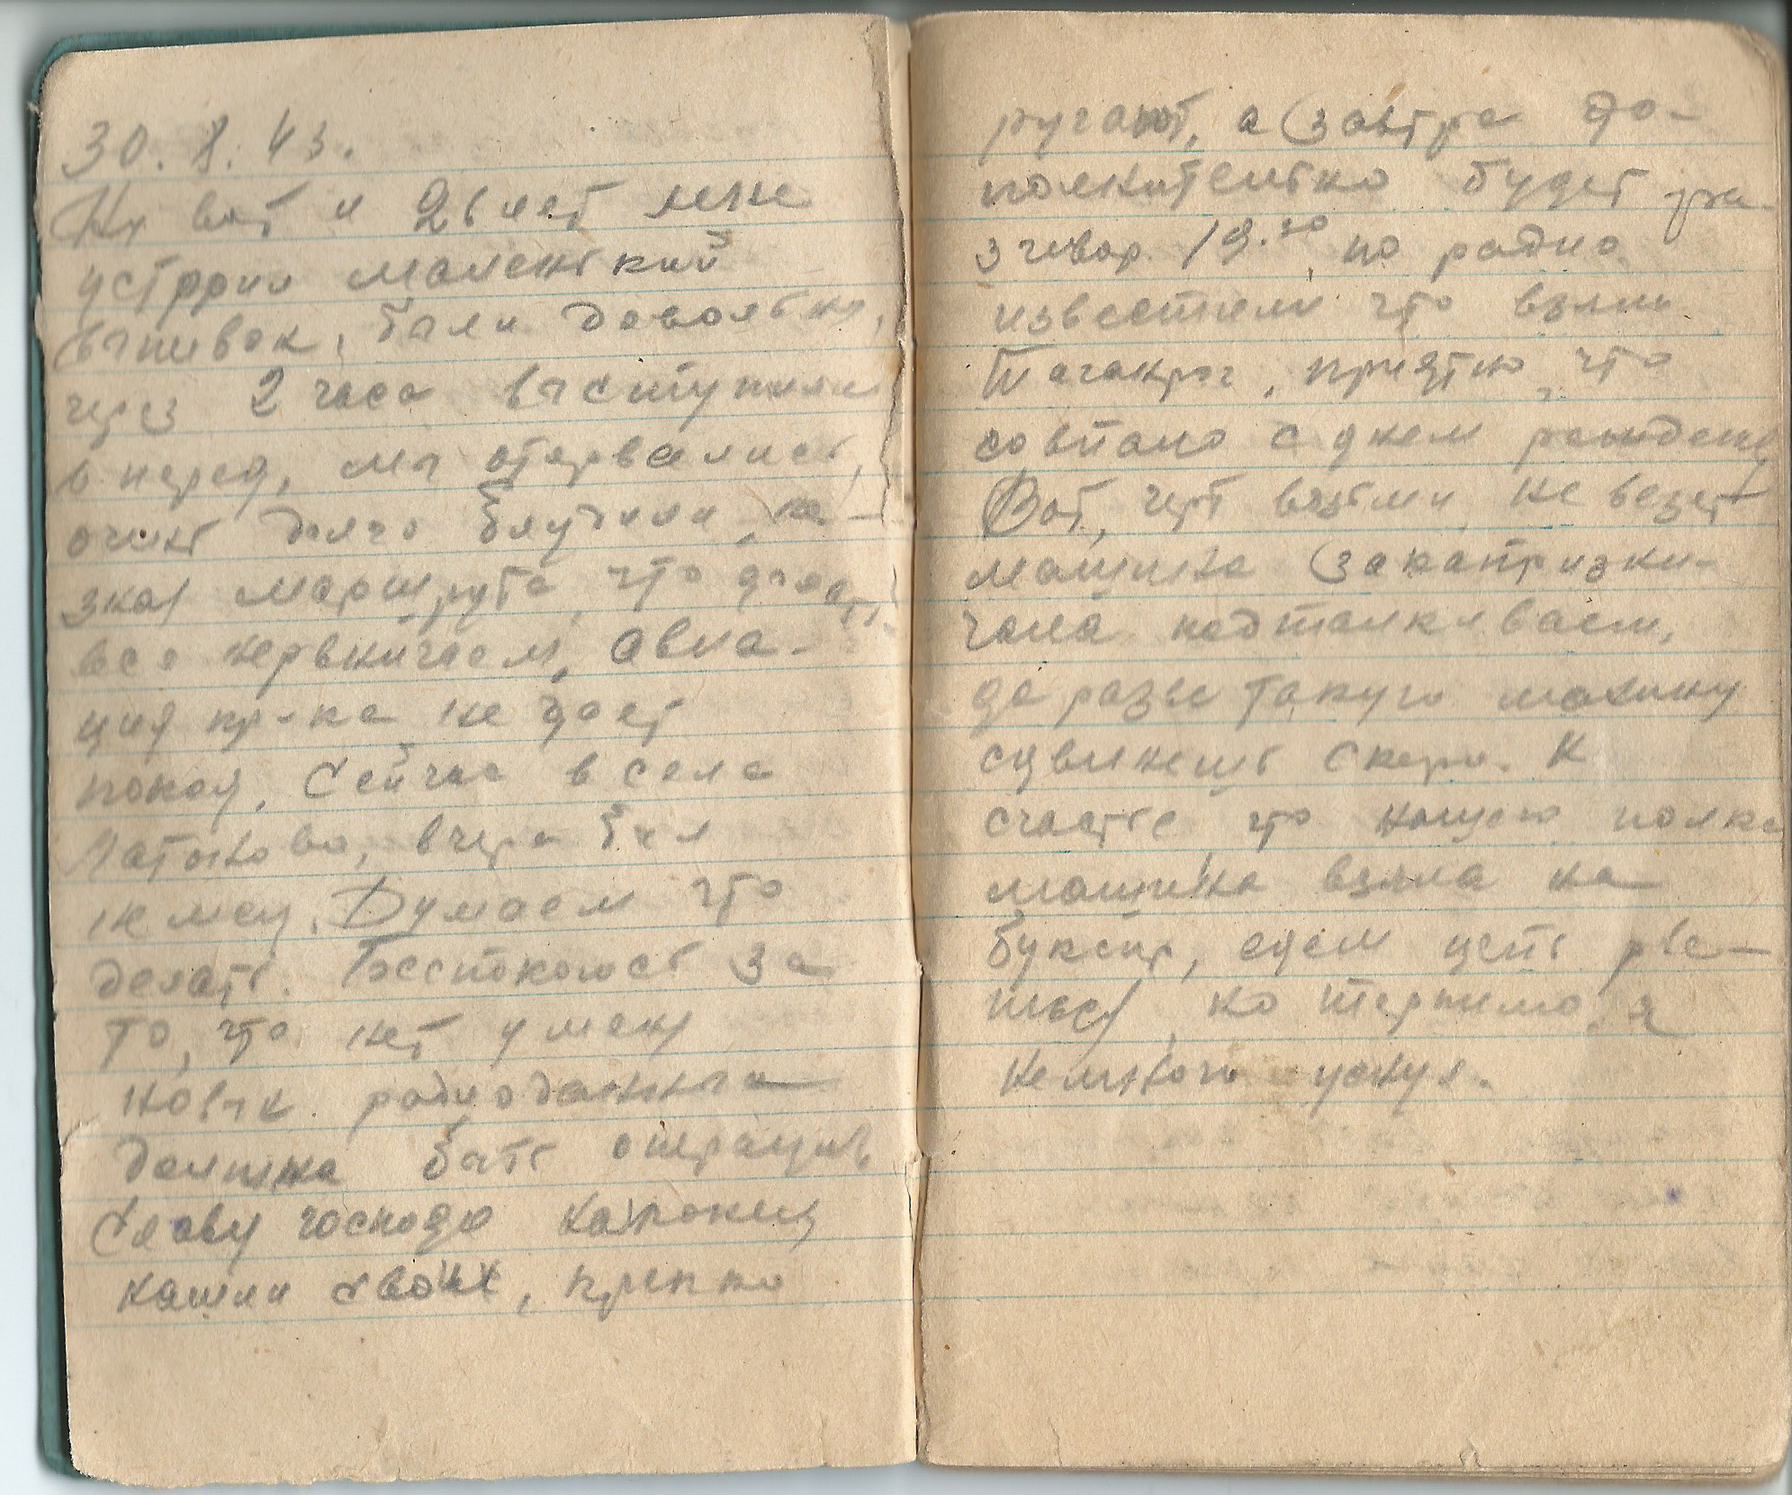 30.8.43.
Ну вот и 21 лет мне
устроил маленький
выпивок, были довольны,
через 2 часа выступили
вперед, мы оторвались,
очень долго блудили, не-
зная маршрута, что делать,
все нервничаем, авиа-
ция пр-ка не дает
покоя. Сейчас в селе
вчера был
немец. Думаем что
делать. Беспокоюсь за
то, что нет у меня
новых радиоданных
должна быть операция,
Славу господе наконец
нашли своих, крепко
ругают, а завтра до-
полнительно будет
19.30 по радио
известили что взяли
Таганрог, приятно, что
совпало с днем рождения
Вот, черт возьми, не везет
машина закапризни-
чала подталкиваем,
да разве такую махину
сдвинешь скоро. К
счастье что нашего полка
машина взяла на
буксир, едем цепь рве-
ться, но терпимо, я
немного уснул.